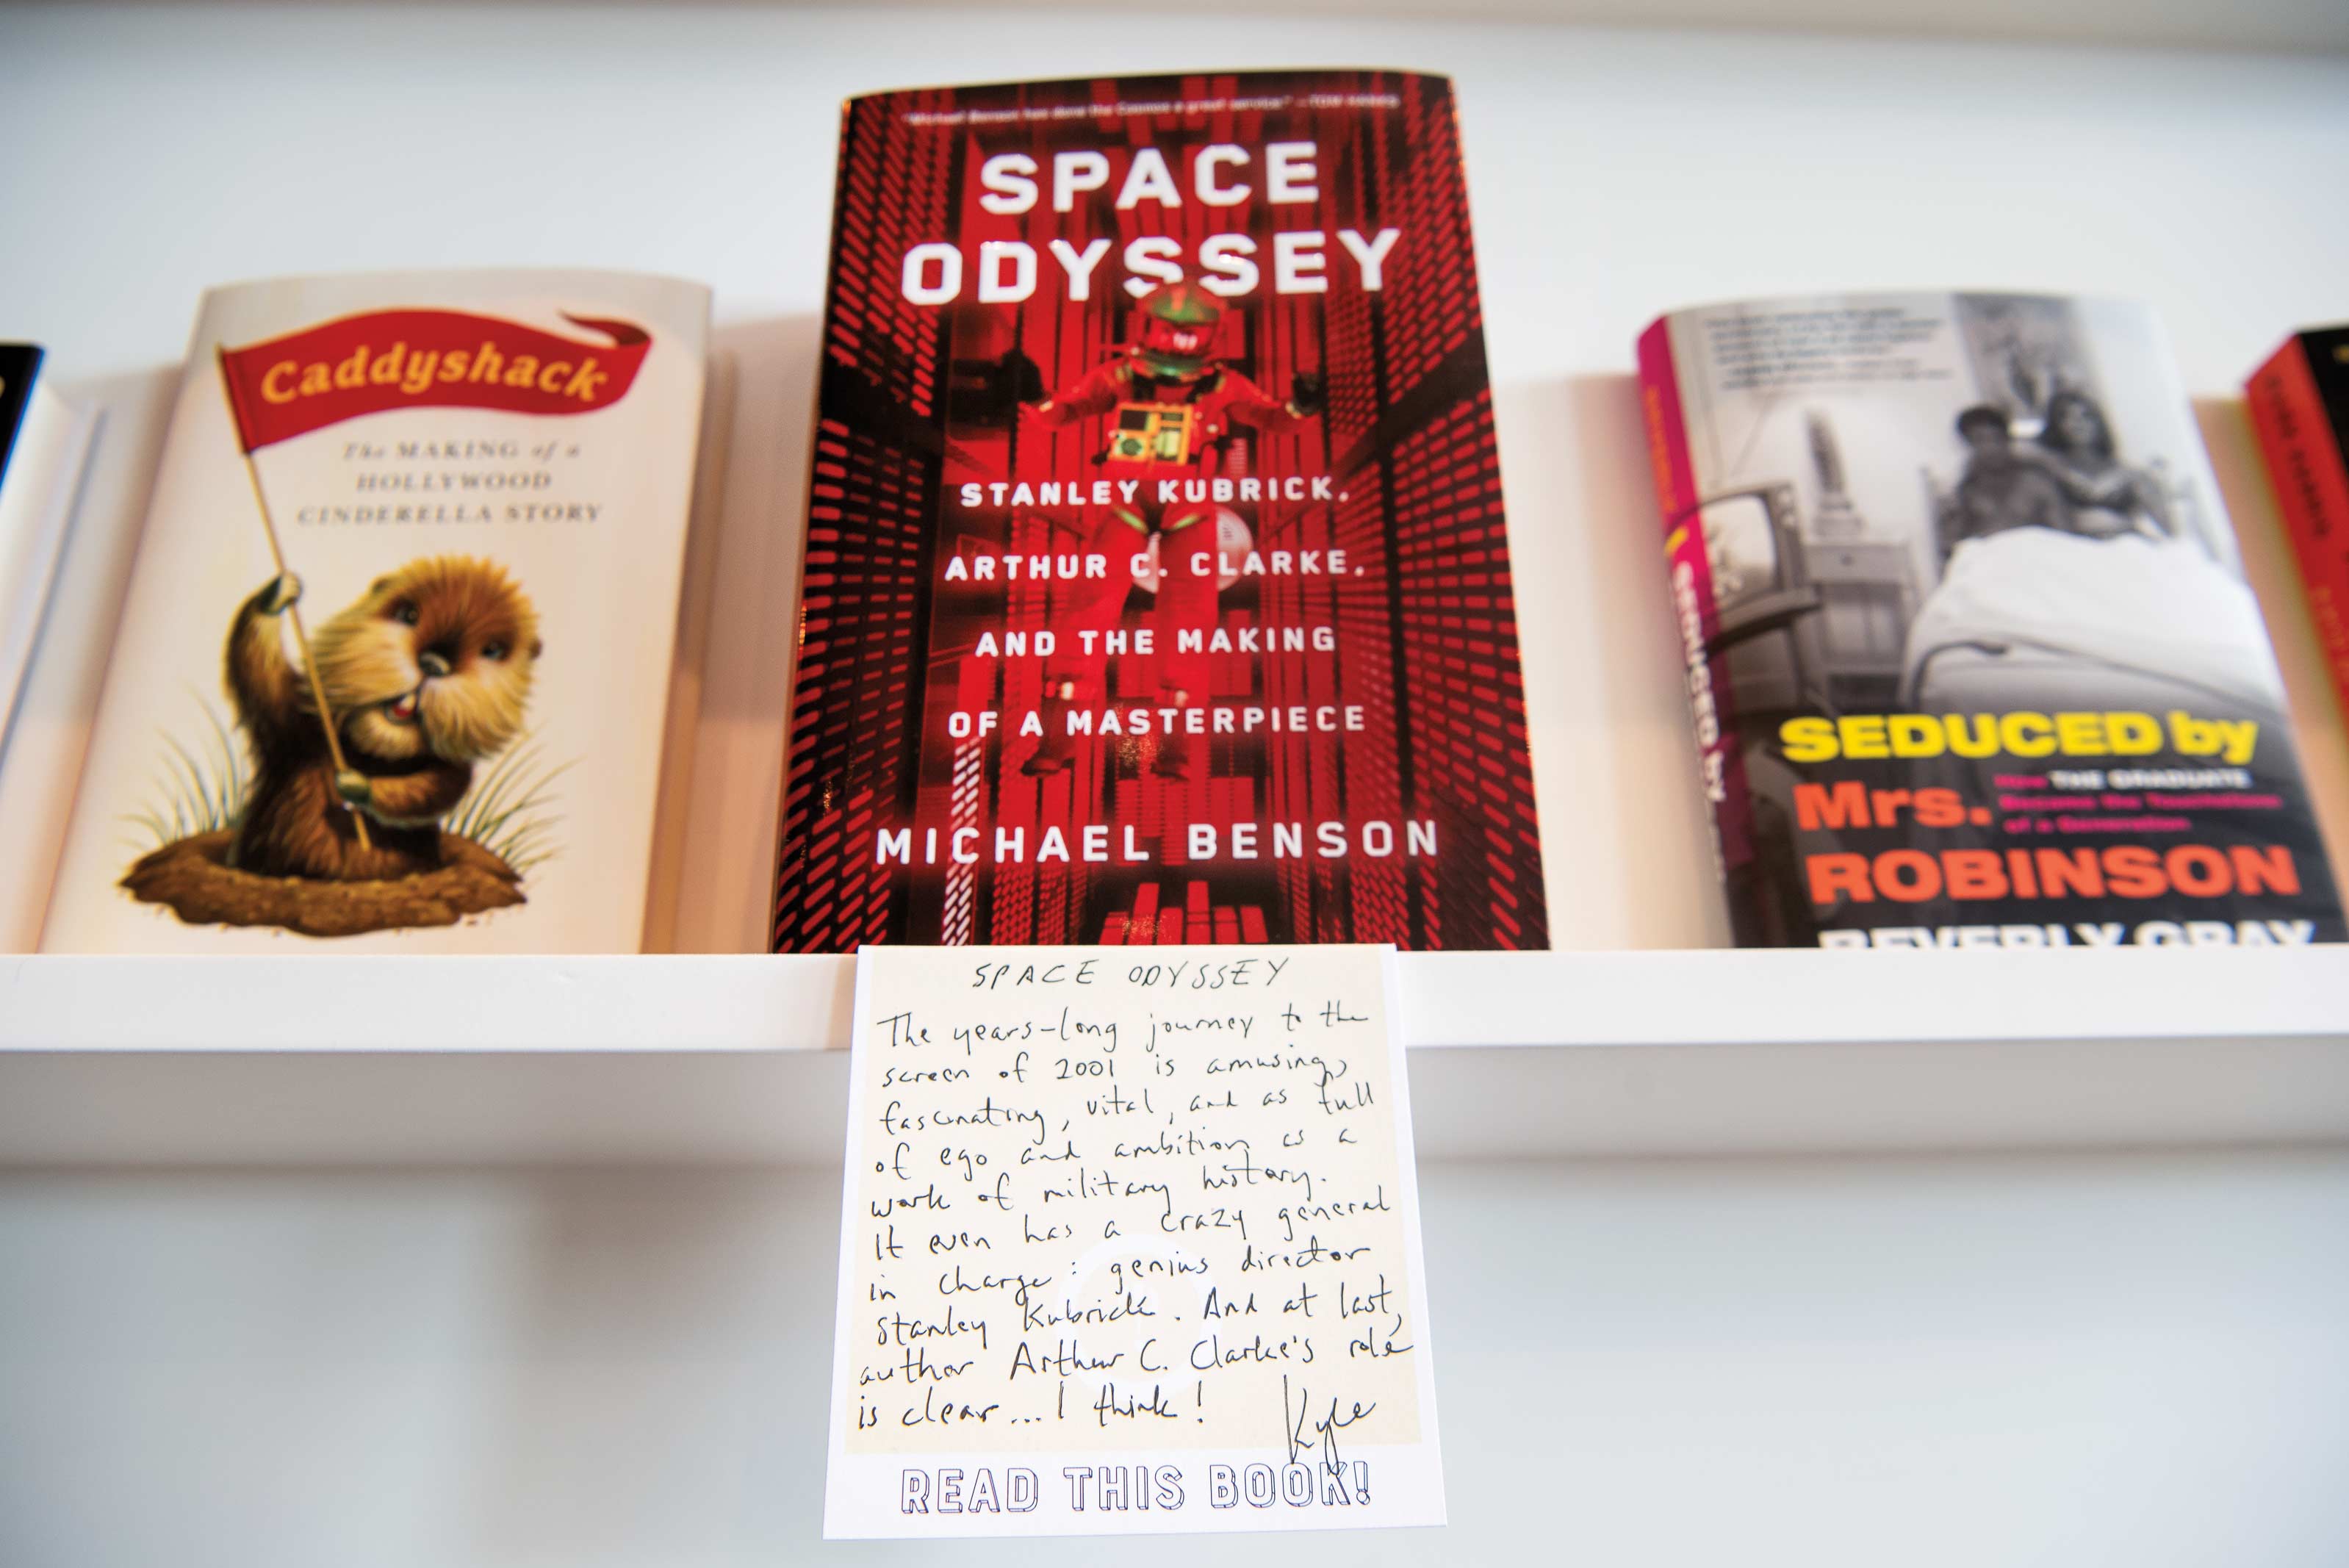 Caddyshack
The MAKING of a
HOLLYWOOD
CINDERELLA STORY
"Michael Benson has done the Cosmos a great service." —TOM HANKS
SPACE
ODYSSEY
STANLEY KUBRICK,
ARTHUR C. CLARKE,
AND THE MAKING
OF A MASTERPIECE
MICHAEL BENSON
SEDUCED by
SEDUCED by
Mrs.
How THE GRADUATE
Became the Touchstone
of a Generation
ROBINSON
BEVERLY GRAY
SPACE ODYSSEY
The years-long journey to the
screen of 2001 is amusing,
fascinating, vital, and as full
of ego and ambition as a
work of military history.
It even has a crazy general
in charge: genius director
Stanley Kubrick. And at last,
author Arthur C. Clarke's role
is clear...I think!
Kyle
READ THIS BOOK!